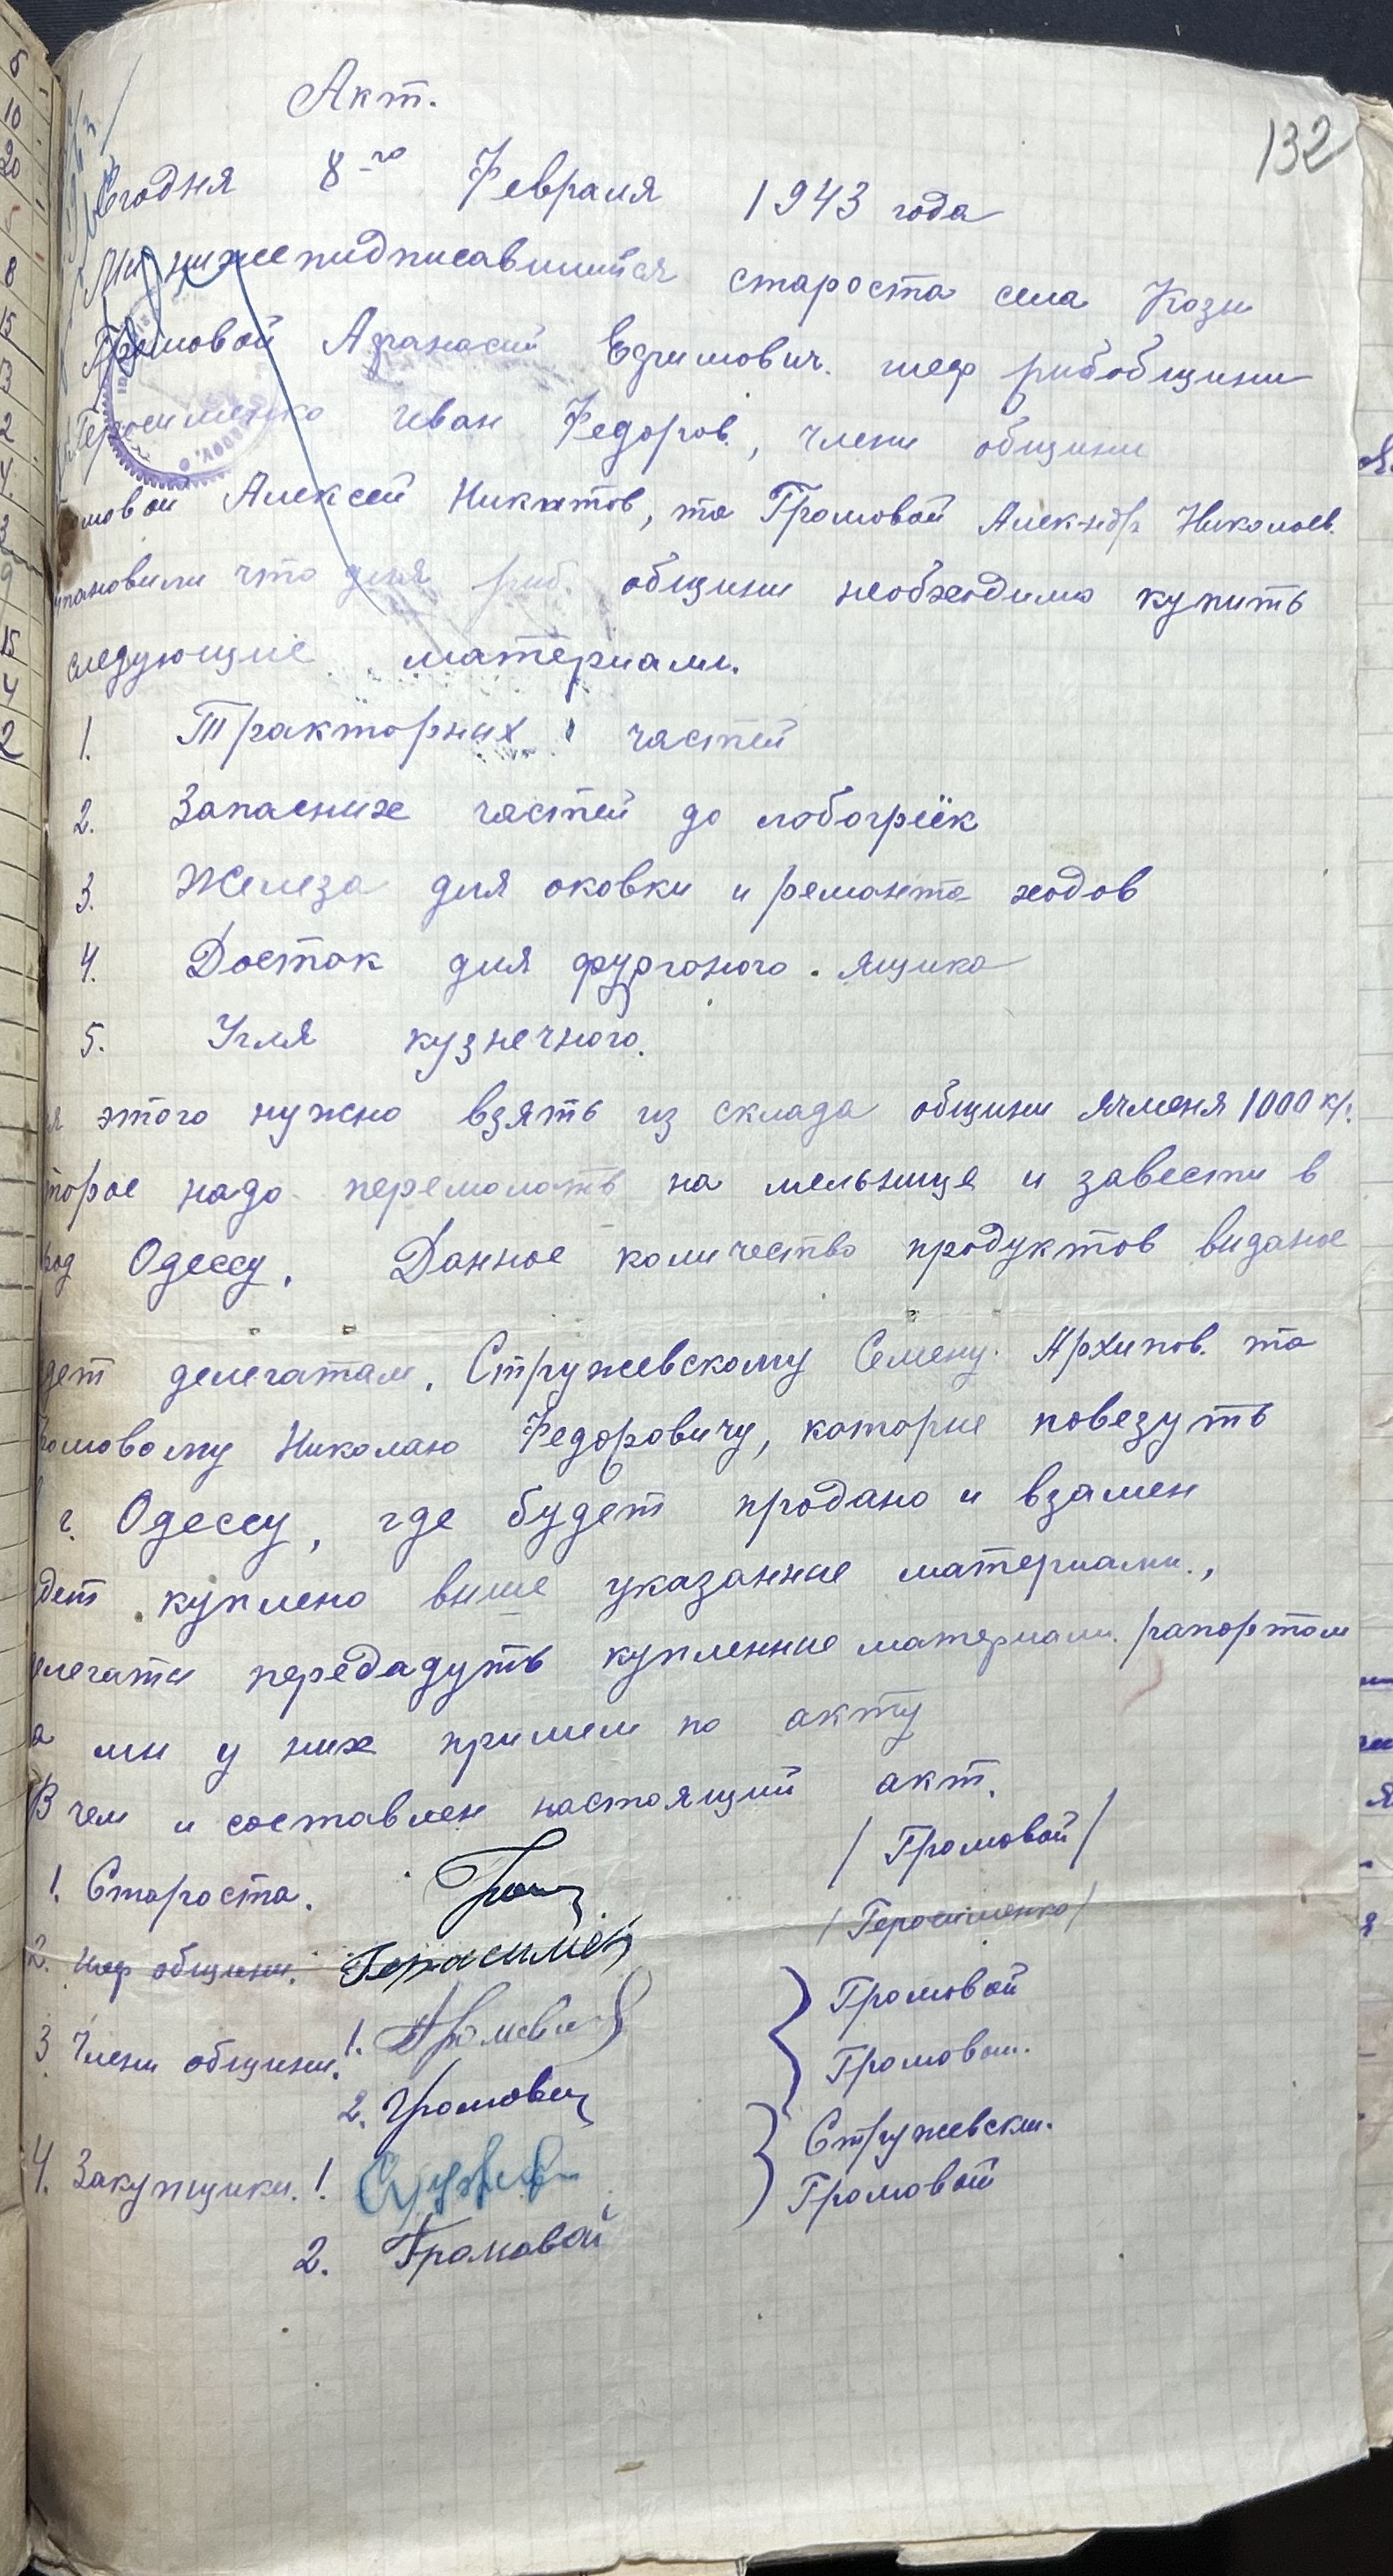 132
Акт.
Сегодня 8-го Февраля 1943 года
Ми нижеподписавшийся староста села Кози
Громовой Афанасий Ефимович. шеф рибобщини
Герасименко Иван Федоров., члени общини
мовой Алексей Никитов, та Громовой Алек-ндр Николаев.
тановили что для риб. общини необходимо купить
следующие материали.
1. Тракторних частей
2. Запасних частей до лобогриёк
3. Железа для оковки и ремонта ходов
4. Досток для фургоного ящика
5. Угля кузнечного.
ля этого нужно взять из склада общини ячменя 1000 кг.
торое надо перемолоть на мельнице и завести в
род Одессу. Данное количество продуктов виданое
дет делегатам. Стружевскому Семену Архипов. та
ромовому Николаю Федоровичу, которие повезуть
в г. Одессу, где будет продано и взамен
дет куплено више указанние материали.,
елегати передадуть купленние материали рапортом
а ми у них примем по акту
В чем и составлен настоящий акт.
1. Староста. /Громовой/
2. Шеф общини. Герасимен /Герасименко/
3 Члени общини. 1. Громовой } Громовой
2. Громовой Громовой.
4. Закупщики. 1. } Стружевски.
2. Громовой Громовой